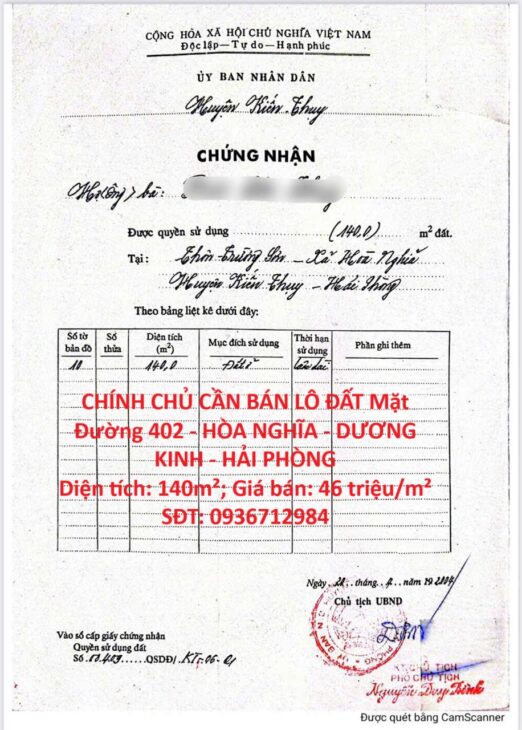 CỘNG HÒA XÃ HỘI CHỦ NGHĨA VIỆT NAM
Độc lập — Tự do — Hạnh phúc
ỦY BAN NHÂN DÂN
Huyện Kiến Thụy
CHỨNG NHẬN
Hộ (ông) bà:
Được quyền sử dụng (140,0) m² đất.
Tại: Thôn Trường Sơn - Xã Hoà Nghĩa
Huyện Kiến Thụy - Hải Phòng
Theo bảng liệt kê dưới đây:
Số tờ bản đồ
Số thửa
Diện tích (m²)
Mục đích sử dụng
Thời hạn sử dụng
Phần ghi thêm
10 140,0 Đất ở lâu dài
CHÍNH CHỦ CẦN BÁN LÔ ĐẤT Mặt
Đường 402 - HÒA NGHĨA - DƯƠNG
KINH - HẢI PHÒNG
Diện tích: 140m²; Giá bán: 46 triệu/m²
SĐT: 0936712984
Ngày 20 tháng 4 năm 192004
Chủ tịch UBND
Vào sổ cấp giấy chứng nhận
Quyền sử dụng đất
Số QSDĐ/
KT. CHỦ TỊCH
PHÓ CHỦ TỊCH
Nguyễn Duy Bình
Được quét bằng CamScanner